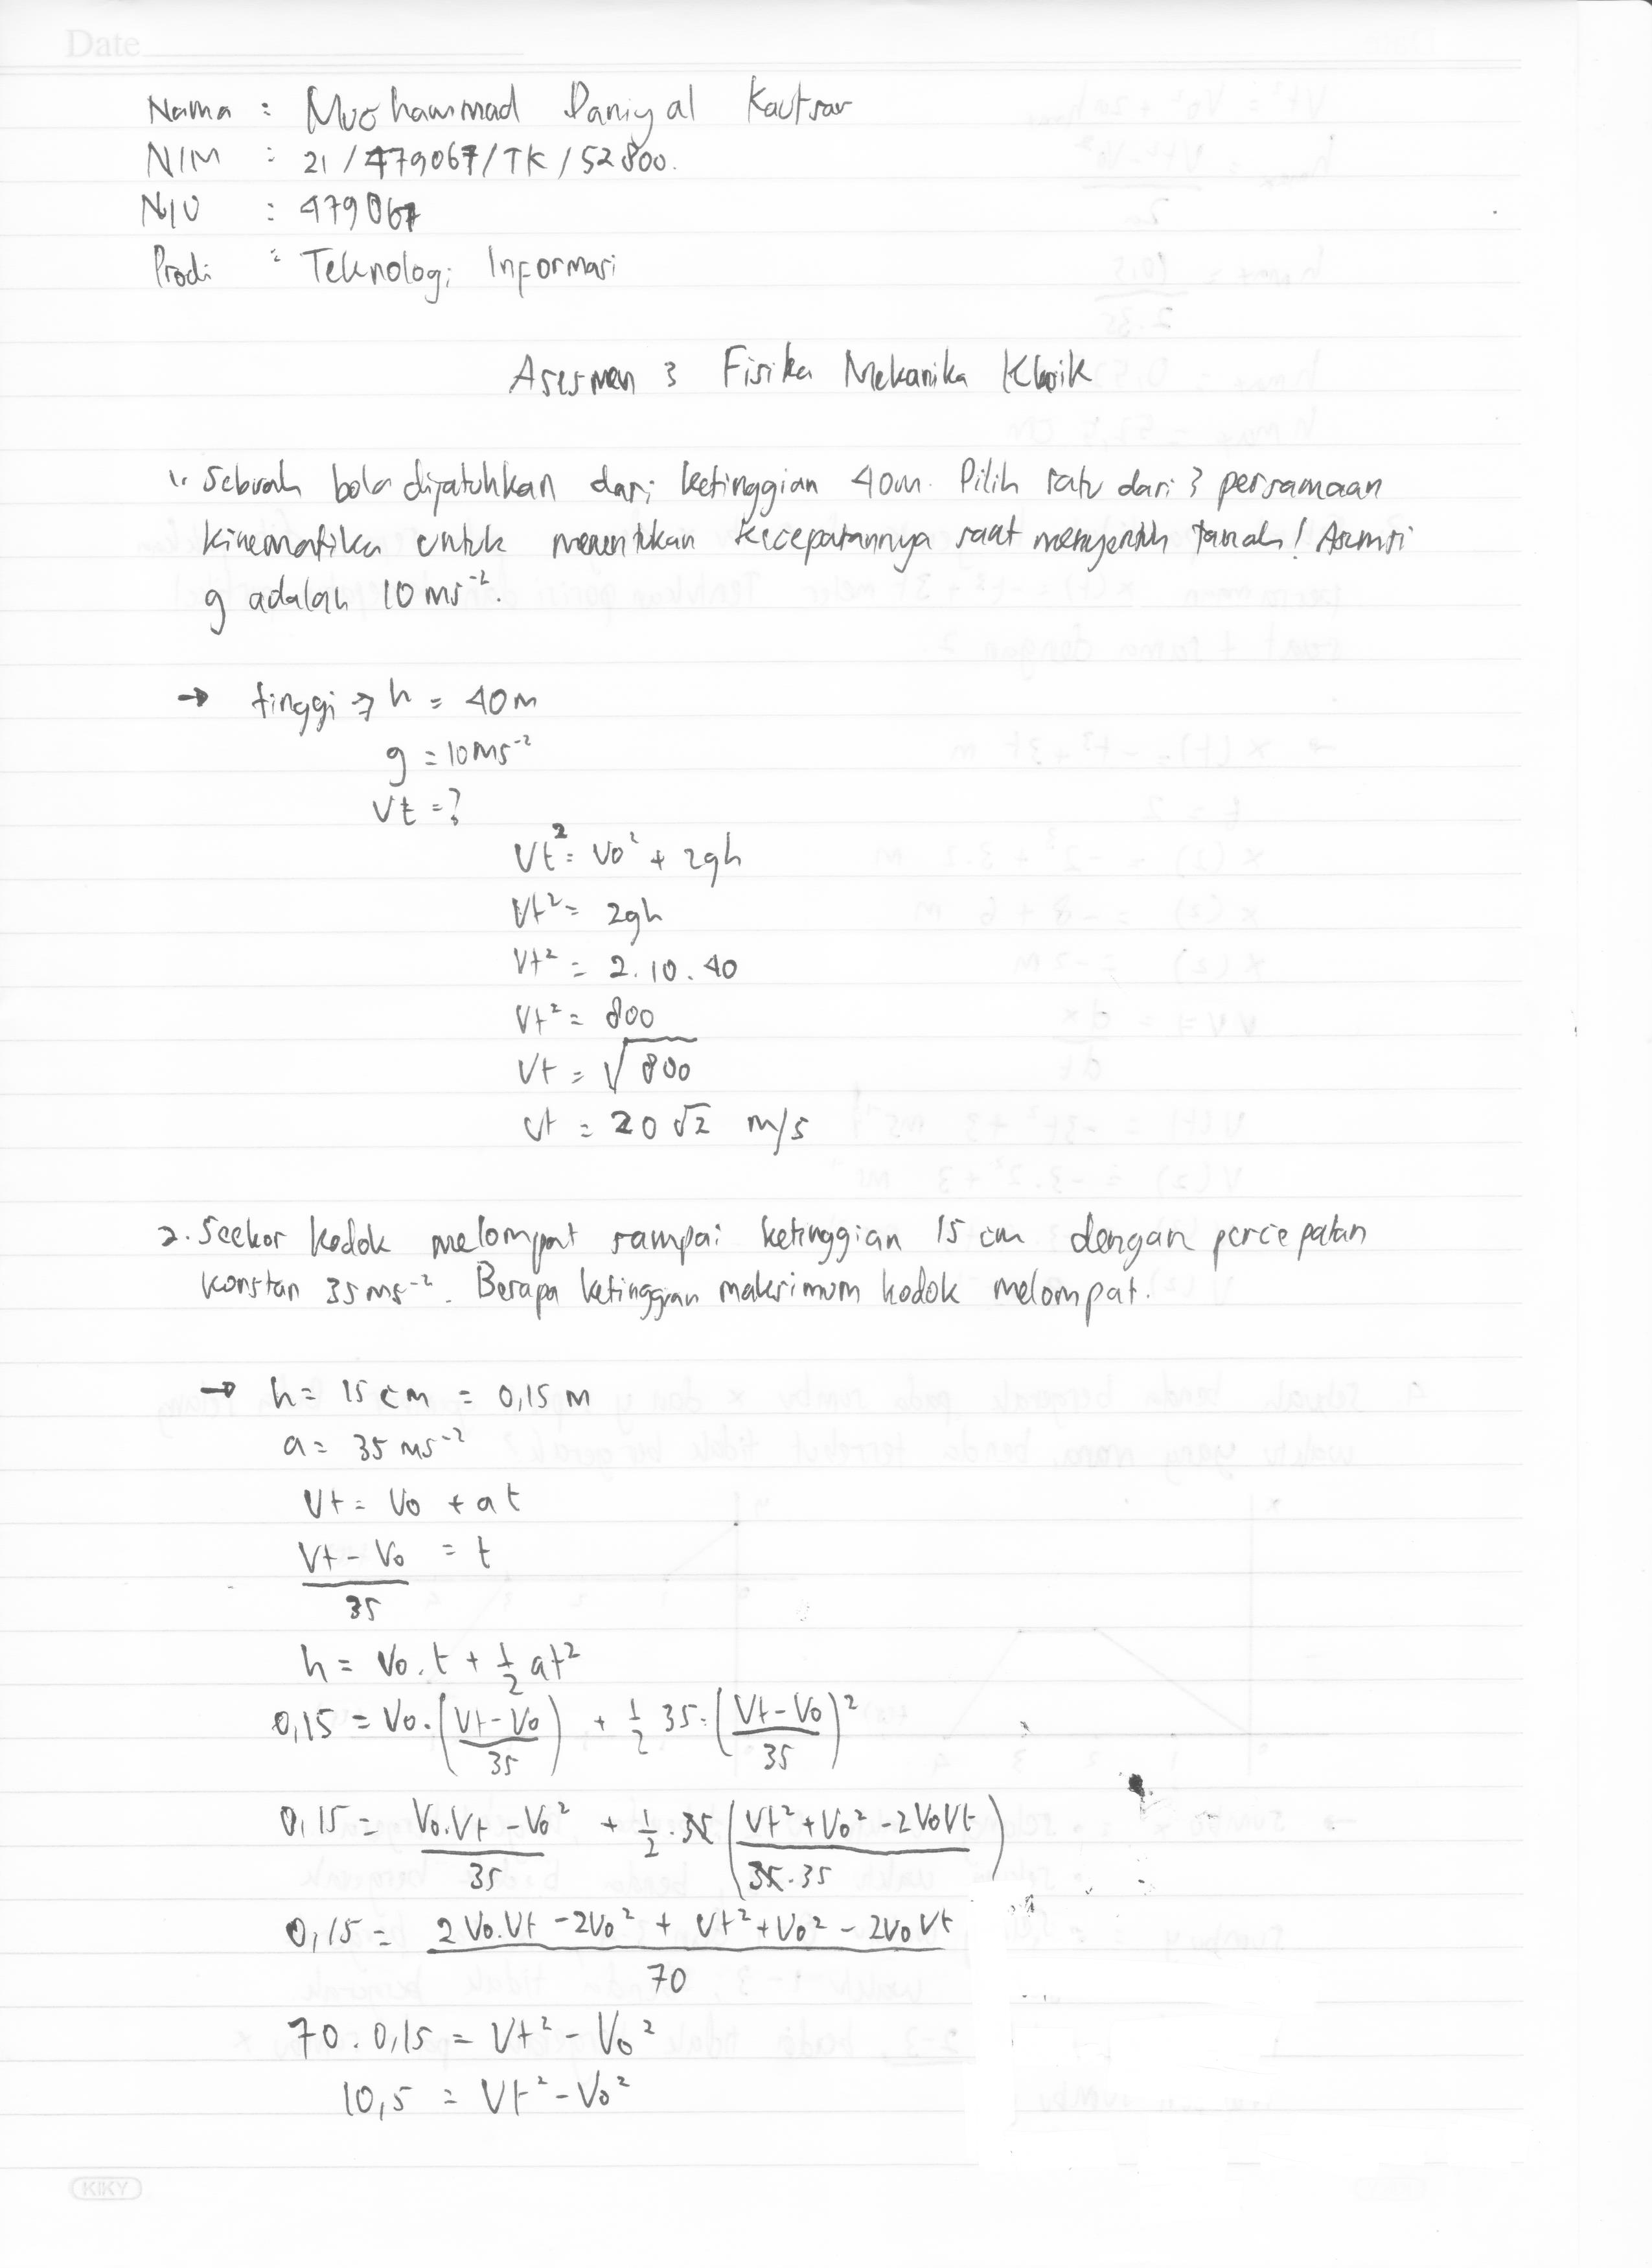 Date
Nama : Muohammad Daniyal Kautsar
NIM : 21/479067/TK/52800.
NIU : 479067
Prodi : Teknologi Informasi
Asesmen 3 Fisika Mekanika Klasik
1. Sebuah bola dijatuhkan dari ketinggian 40m. Pilih satu dari 3 persamaan
kinematika untuk menentukan kecepatannya saat menyentuh tanah! Asumsi
g adalah 10 ms⁻².
→ tinggi ⇒ h = 40m
g = 10 ms⁻²
Vt = ?
Vt² = Vo² + 2gh
Vt² = 2gh
Vt² = 2.10.40
Vt² = 800
Vt = √800
Vt = 20√2 m/s
2. Seekor kodok melompat sampai ketinggian 15 cm dengan percepatan
konstan 35 ms⁻². Berapa ketinggian maksimum kodok melompat.
→ h = 15 cm = 0,15 m
a = 35 ms⁻²
Vt = Vo + at
(Vt - Vo)/35 = t
h = Vo.t + 1/2 at²
0,15 = Vo.((Vt - Vo)/35) + 1/2 35.((Vt - Vo)/35)²
0,15 = (Vo.Vt - Vo²)/35 + 1/2 . 35 ((Vt² + Vo² - 2VoVt)/(35.35))
0,15 = (2Vo.Vt - 2Vo² + Vt² + Vo² - 2VoVt)/70
70.0,15 = Vt² - Vo²
10,5 = Vt² - Vo²
KIKY